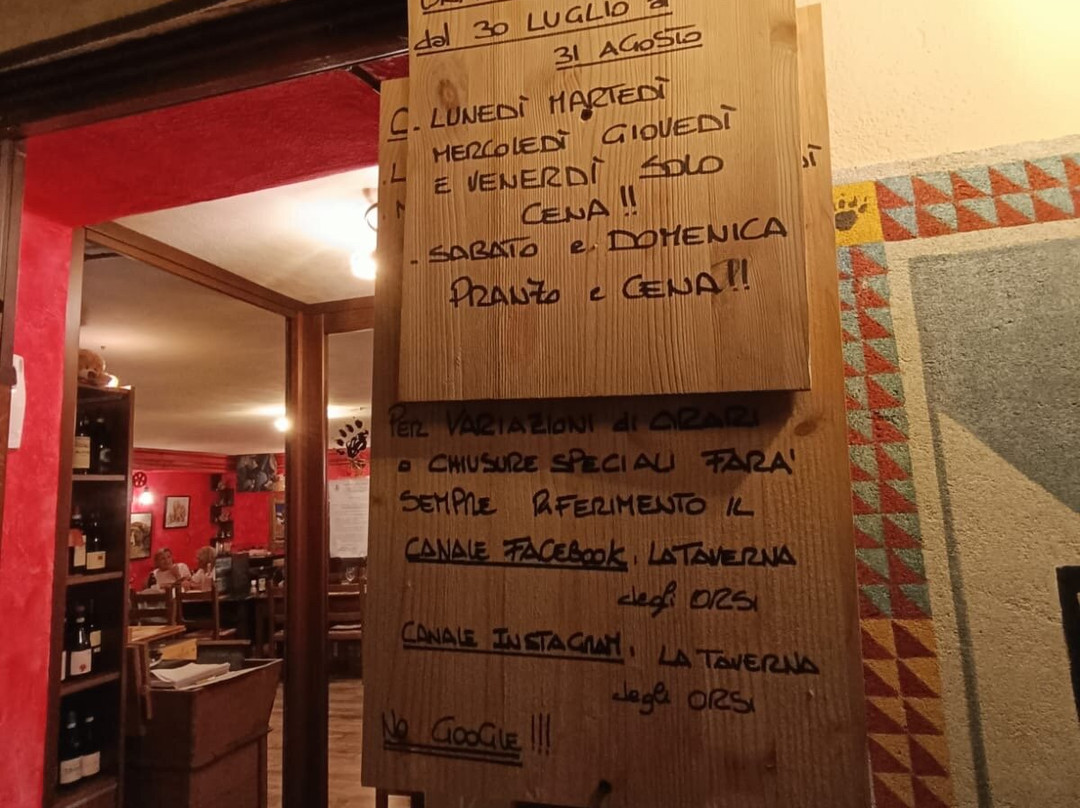 dal 30 LUGLIO al
31 AGOSTO
. LUNEDÌ MARTEDÌ
MERCOLEDÌ GIOVEDÌ
E VENERDÌ SOLO
CENA!!
. SABATO e DOMENICA
PRANZO e CENA!!
PER VARIAZIONI di ORARI
o CHIUSURE SPECIALI FARA'
SEMPRE RIFERIMENTO IL
CANALE FACEBOOK. LA TAVERNA
degli ORSI
CANALE INSTAGRAM. LA TAVERNA
degli ORSI
NO GOOGLE!!!